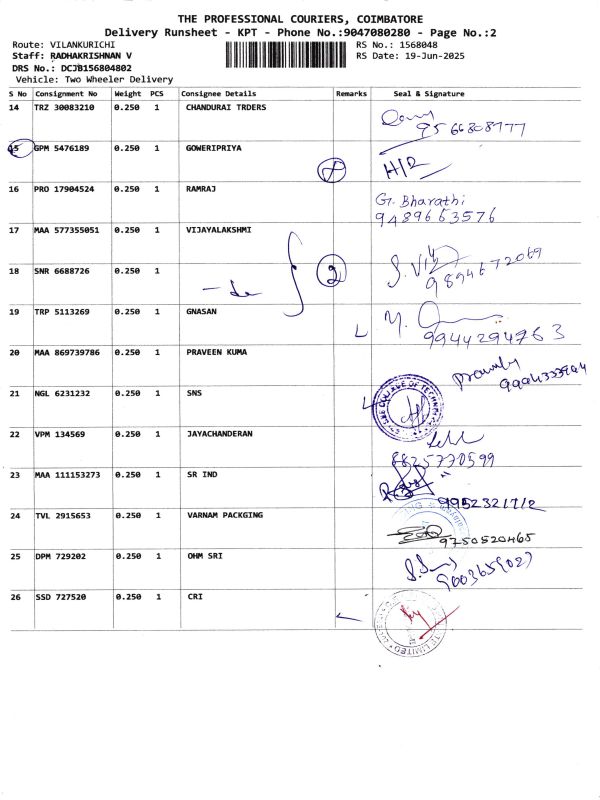 THE PROFESSIONAL COURIERS, COIMBATORE
Delivery Runsheet - KPT - Phone No.:9047080280 - Page No.:2
Route: VILANKURICHI
RS No.: 1568048
Staff: RADHAKRISHNAN V
RS Date: 19-Jun-2025
DRS No.: DCJB156804802
Vehicle: Two Wheeler Delivery
S No Consignment No Weight PCS Consignee Details Remarks Seal & Signature
14 TRZ 30083210 0.250 1 CHANDURAI TRDERS
9566808777
15 GPM 5476189 0.250 1 GOWERIPRIYA
H/R
16 PRO 17904524 0.250 1 RAMRAJ
G. Bharathi
9489653576
17 MAA 577355051 0.250 1 VIJAYALAKSHMI
18 SNR 6688726 0.250 1 2
9894672069
19 TRP 5113269 0.250 1 GNASAN
9944294763
20 MAA 869739786 0.250 1 PRAVEEN KUMA
21 NGL 6231232 0.250 1 SNS
22 VPM 134569 0.250 1 JAYACHANDERAN
8825770599
23 MAA 111153273 0.250 1 SR IND
24 TVL 2915653 0.250 1 VARNAM PACKGING
9750520465
25 DPM 729202 0.250 1 OHM SRI
26 SSD 727520 0.250 1 CRI